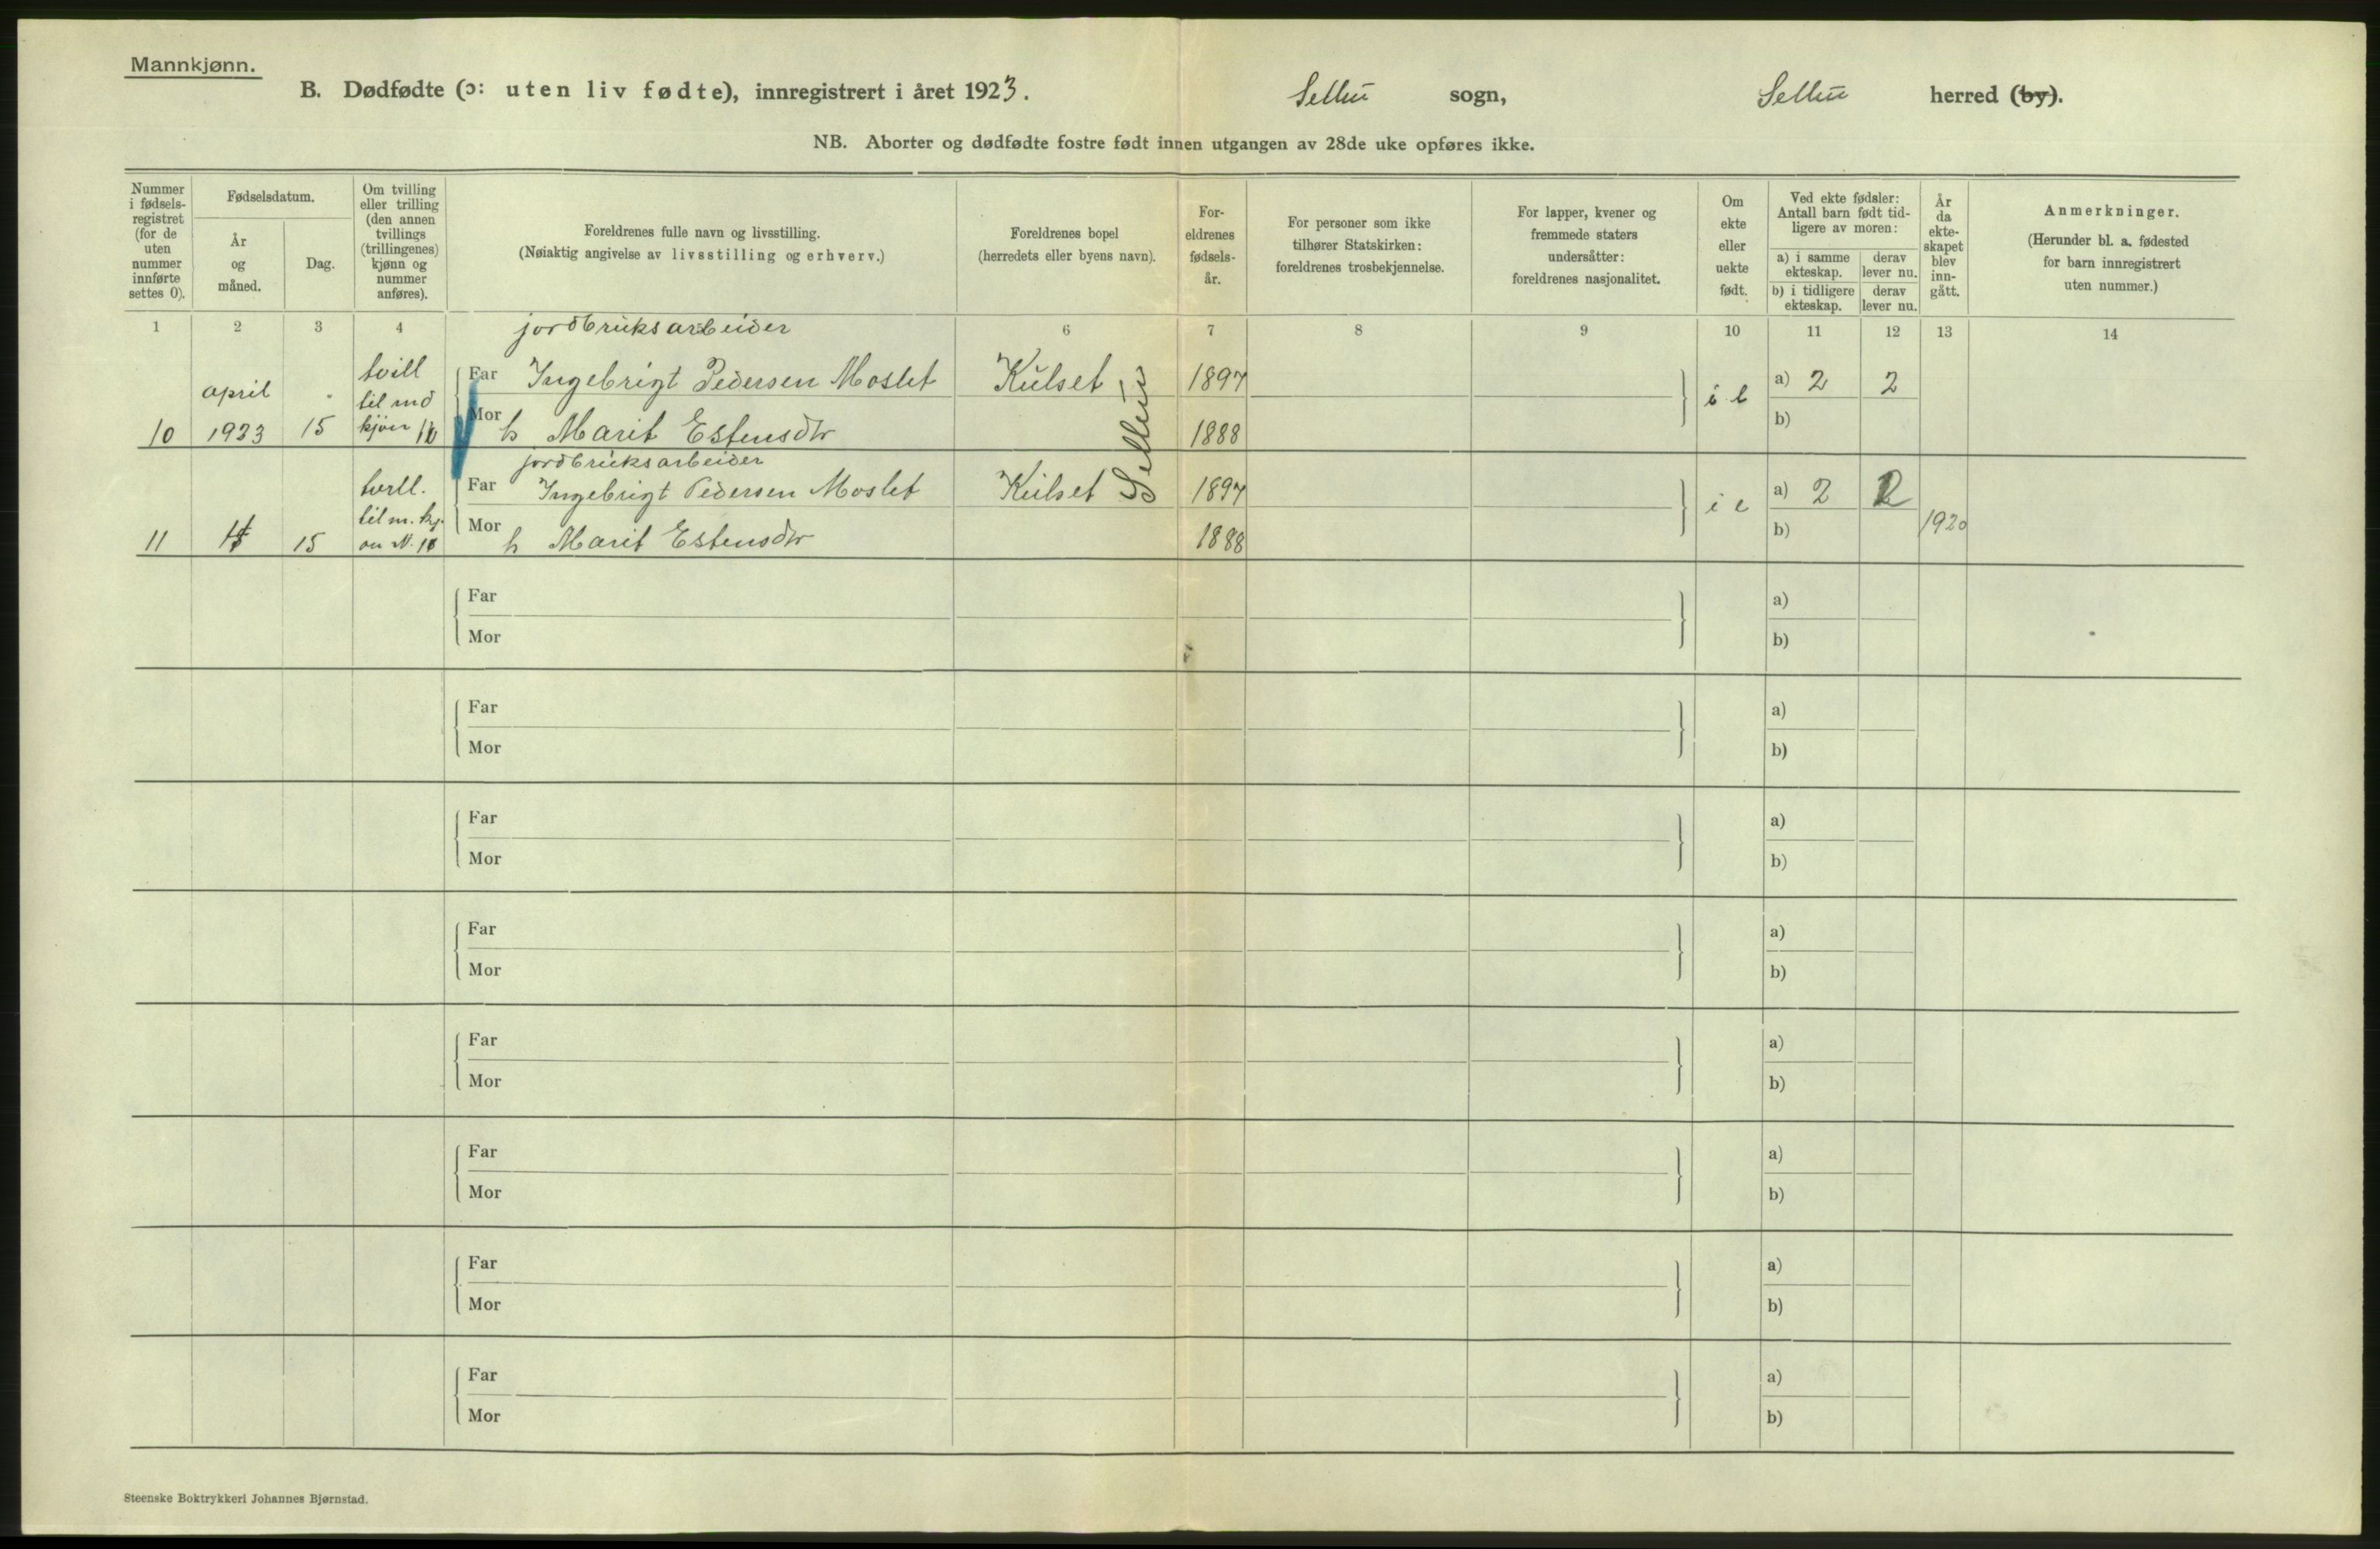 Mannkjønn.
B. Dødfødte (ɔ: uten liv fødte), innregistrert i året 1923.
Selbu sogn,
Selbu herred (by).
NB. Aborter og dødfødte fostre født innen utgangen av 28de uke opføres ikke.
Nummer
i fødsels-
registret
(for de
uten
nummer
innførte
settes 0).
Fødselsdatum.
År
og
måned.
Dag.
Om tvilling
eller trilling
(den annen
tvillings
(trillingenes)
kjønn og
nummer
anføres).
Foreldrenes fulle navn og livsstilling.
(Nøiaktig angivelse av livsstilling og erhverv.)
Foreldrenes bopel
(herredets eller byens navn).
For-
eldrenes
fødsels-
år.
For personer som ikke
tilhører Statskirken:
foreldrenes trosbekjennelse.
For lapper, kvener og
fremmede staters
undersåtter:
foreldrenes nasjonalitet.
Om
ekte
eller
uekte
født.
Ved ekte fødsler:
Antall barn født tid-
ligere av moren:
a) i samme
ekteskap.
derav
lever nu.
b) i tidligere
ekteskap.
derav
lever nu.
År
da
ekte-
skapet
blev
inn-
gått.
Anmerkninger.
(Herunder bl. a. fødested
for barn innregistrert
uten nummer.)
1 2 3 4 6 7 8 9 10 11 12 13 14
jordbruksarbeider
tvill
til md
kjøn 11
april
1923
10
15
Far Ingebrigt Pedersen Moslet
Kulset
1897
a) 2 2
Mor h Marit Estensdtr
Selbu
1888
b)
jordbruksarbeider
tvill.
til m. kj.
Far Ingebrigt Pedersen Moslet
Kulset
1897
i e
a) 2 2
11
15
Mor h Marit Estensdtr
1888
b)
1920
Far
a)
Mor
b)
Far
a)
Mor
b)
Far
a)
Mor
b)
Far
a)
Mor
b)
Far
a)
Mor
b)
Far
a)
Mor
b)
Far
a)
Mor
b)
Far
a)
Mor
b)
Steenske Boktrykkeri Johannes Bjørnstad.